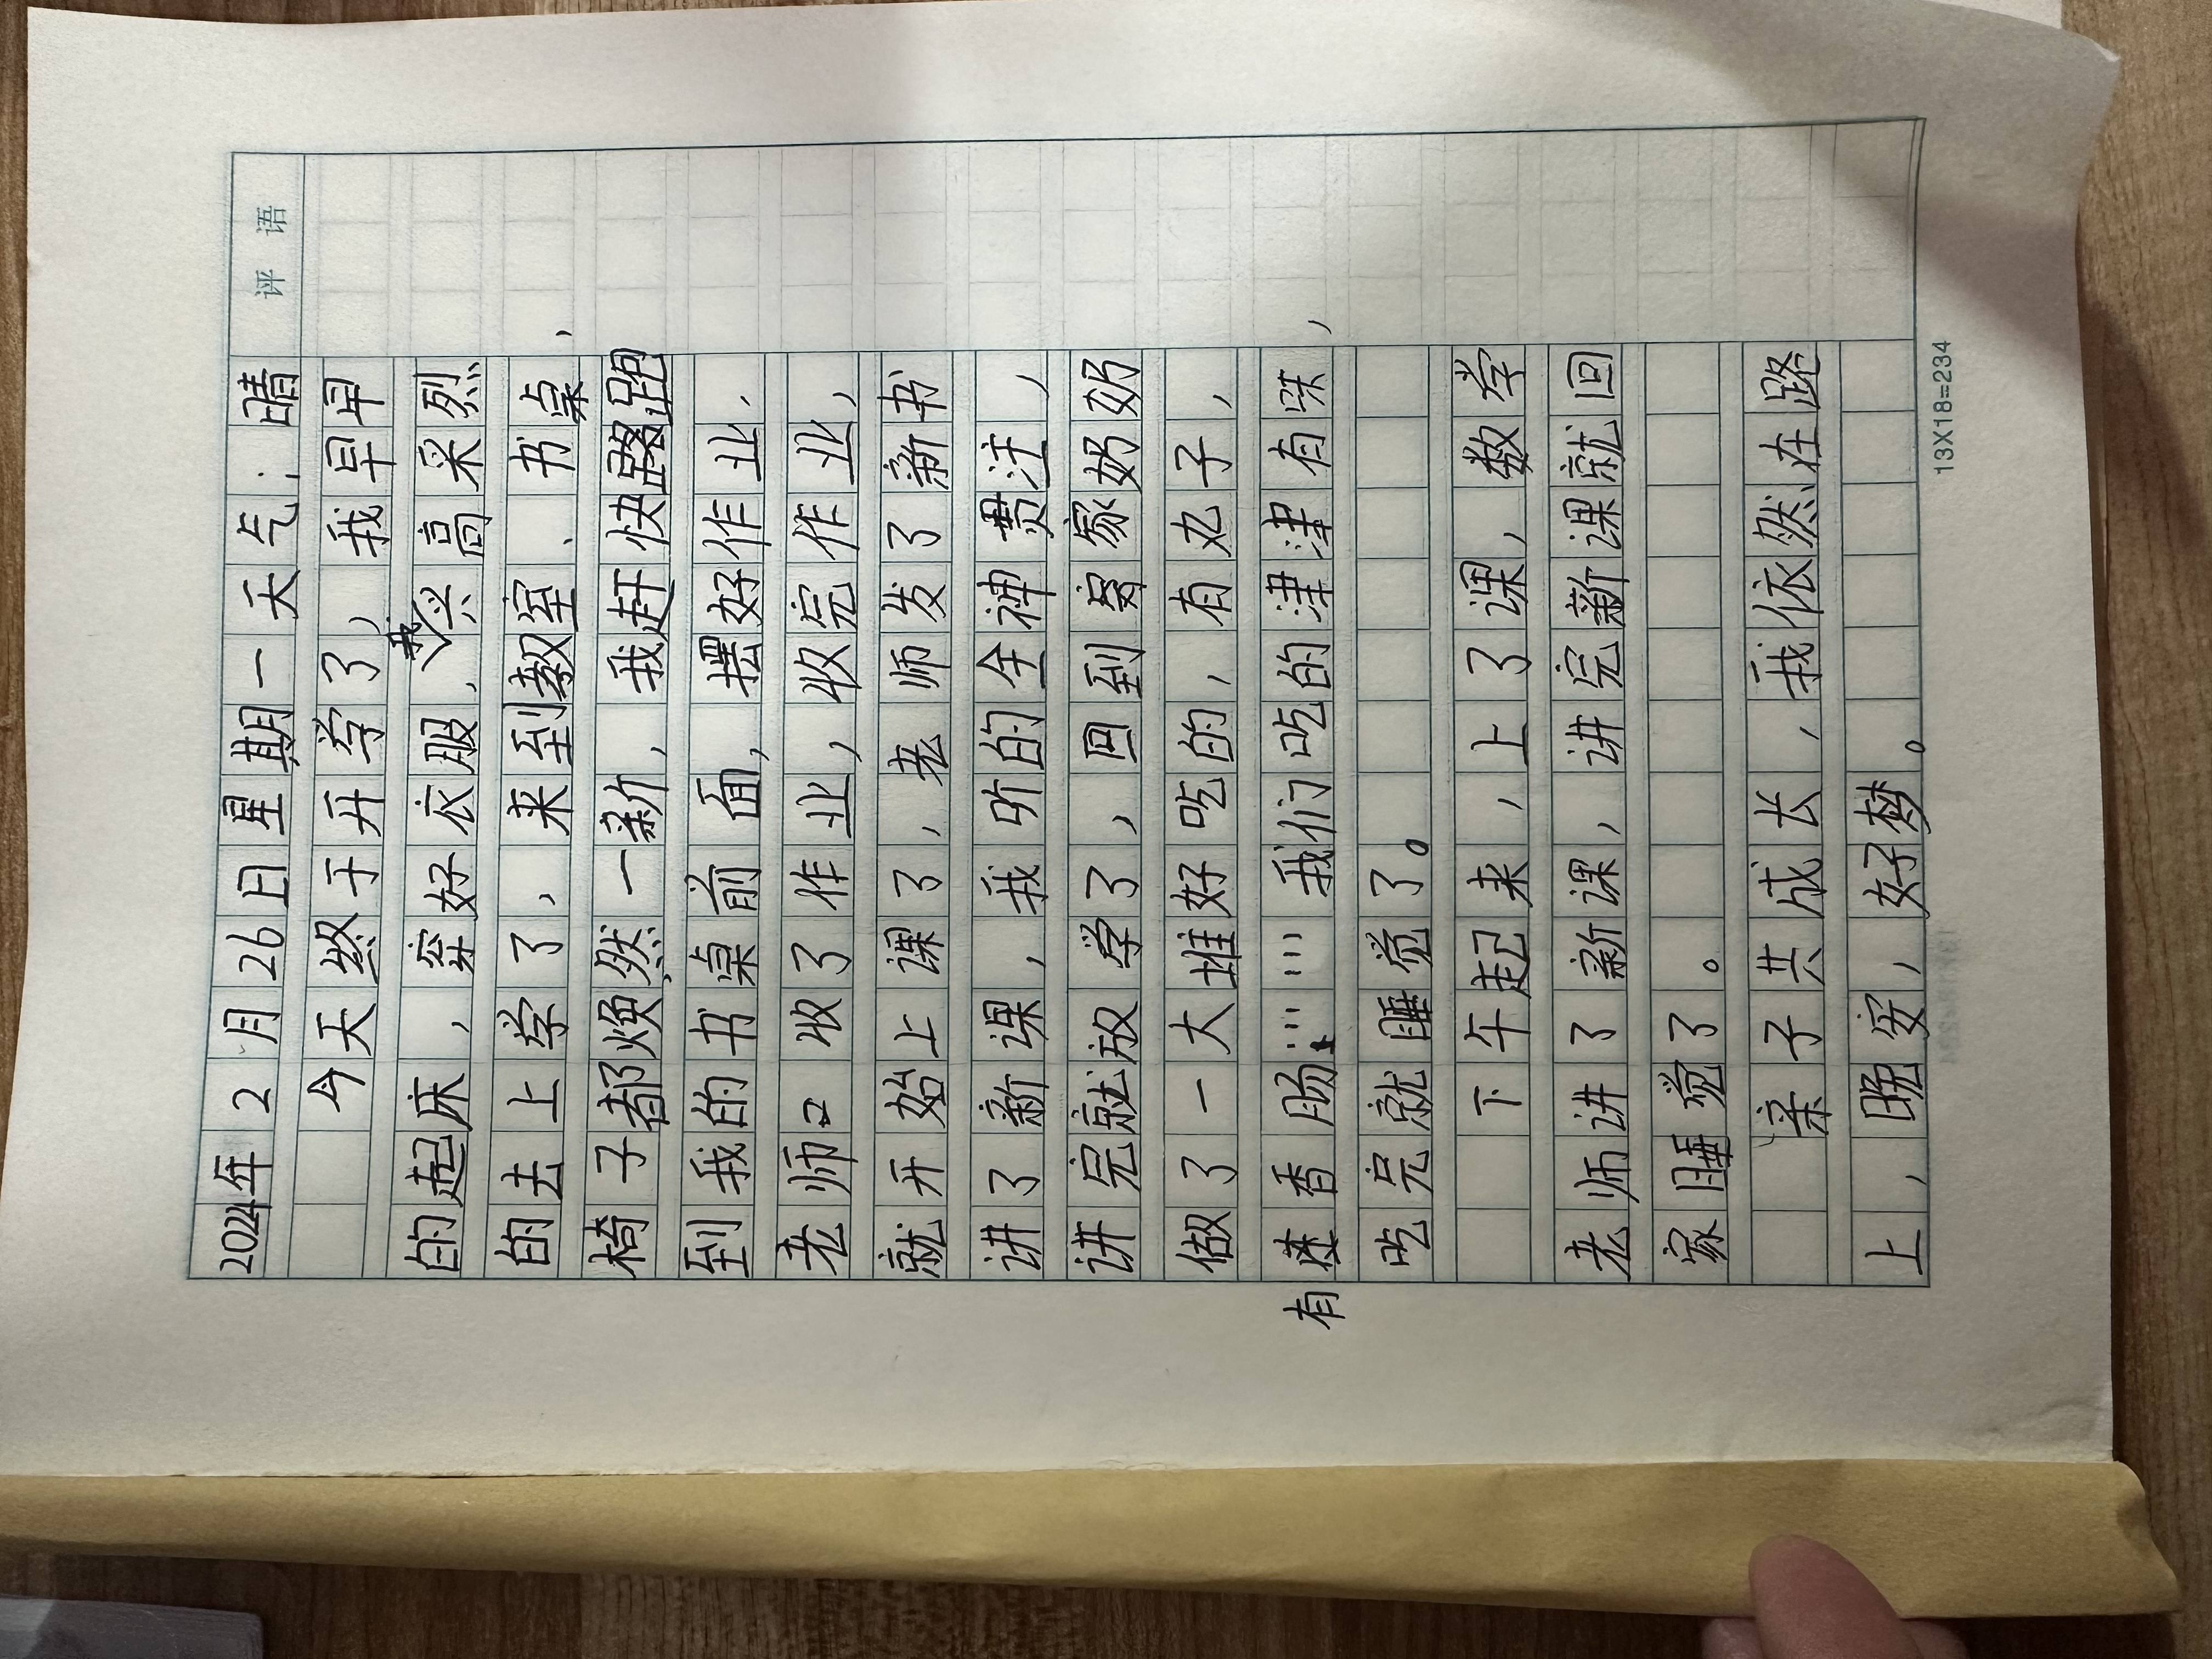 2024年2月26日星期一天气:晴
评 语
今天终于开学了,我早早
的起床,穿好衣服,我兴高采烈
的去上学了,来到教室、书桌,
椅子都焕然一新,我赶快跑
到我的书桌前面,摆好作业,
老师收了作业,收完作业,
就开始上课了,老师发了新书
讲了新课,我听的全神贯注,
讲完就放学了,回到家奶奶
做了一大堆好吃的,有丸子,
有香肠……我们吃的津津有味,
吃完就睡觉了。
下午起来,上了课,数学
老师讲了新课,讲完新课就回
家睡觉了。
亲子共成长,我依然在路
上,晚安,好梦。
13X18=234